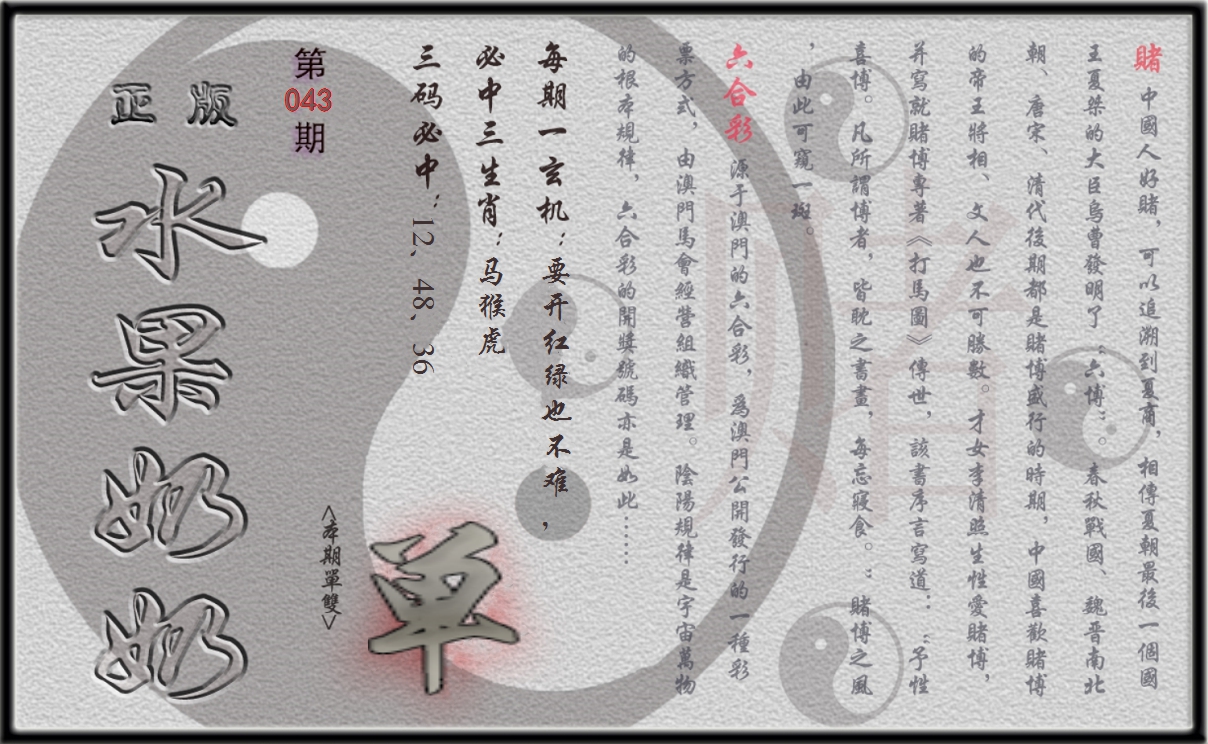 賭 中國人好賭，可以追溯到夏商，相傳夏朝最後一個國
王夏桀的大臣烏曹發明了“六博”。春秋戰國、魏晋南北
朝、唐宋、清代後期都是賭博盛行的時期，中國喜歡賭博
的帝王將相、文人也不可勝數。才女李清照生性愛賭博，
并寫就賭博專著《打馬圖》傳世，該書序言寫道：“予性
喜博。凡所謂博者，皆眈之書畫，每忘寢食。：賭博之風
，由此可窺一斑。
六合彩 源于澳門的六合彩，爲澳門公開發行的一種彩
票方式，由澳門馬會經營組織管理。陰陽規律是宇宙萬物
的根本規律，六合彩的開獎號碼亦是如此……
每期一玄机：要开红绿也不难，
必中三生肖：马猴虎
三码必中：12、48、36
第
043
期
正版
水果奶奶
<本期單雙>
单